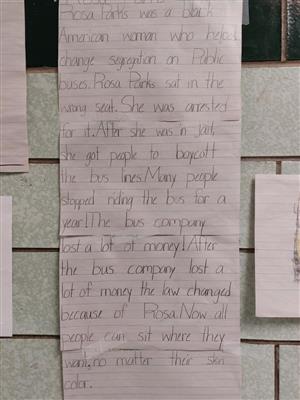 Rosa Parks was a black
American woman who helped
change segregation on Public
buses. Rosa Parks sat in the
wrong seat. She was arrested
for it. After she was in Jail,
she got people to boycott
the bus lines. Many people
stopped riding the bus for a
year! The bus company
lost a lot of money! After
the bus company lost a
lot of money the law changed
because of Rosa. Now all
people can sit where they
want, no matter their skin
color.